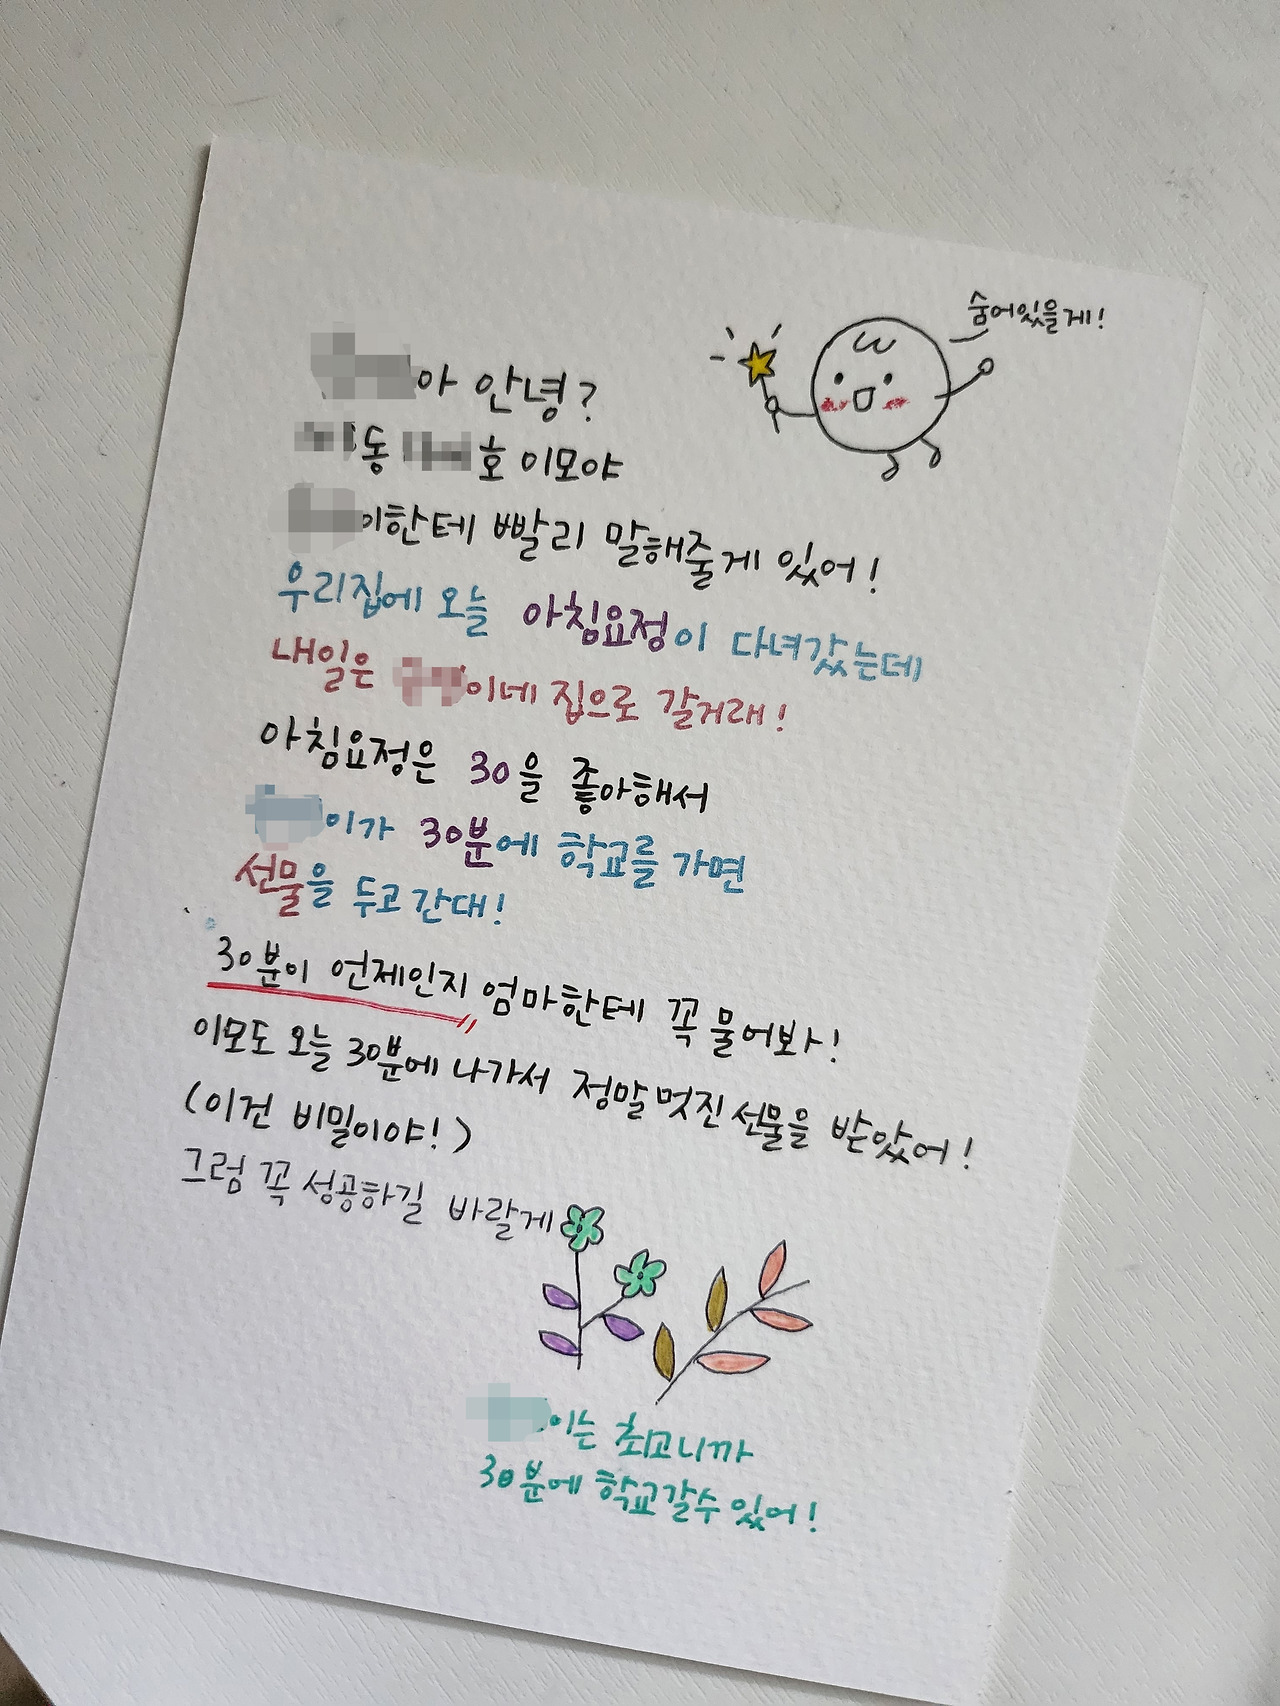 숨어있을게!
아 안녕?
동 호 이모야
이한테 빨리 말해줄게 있어!
우리집에 오늘 아침요정이 다녀갔는데
내일은 이네 집으로 갈거래!
아침요정은 30을 좋아해서
이가 30분에 학교를 가면
선물을 두고 간대!
30분이 언제인지 엄마한테 꼭 물어봐!
이모도 오늘 30분에 나가서 정말 멋진 선물을 받았어!
(이건 비밀이야!)
그럼 꼭 성공하길 바랄게
이는 최고니까
30분에 학교갈수 있어!